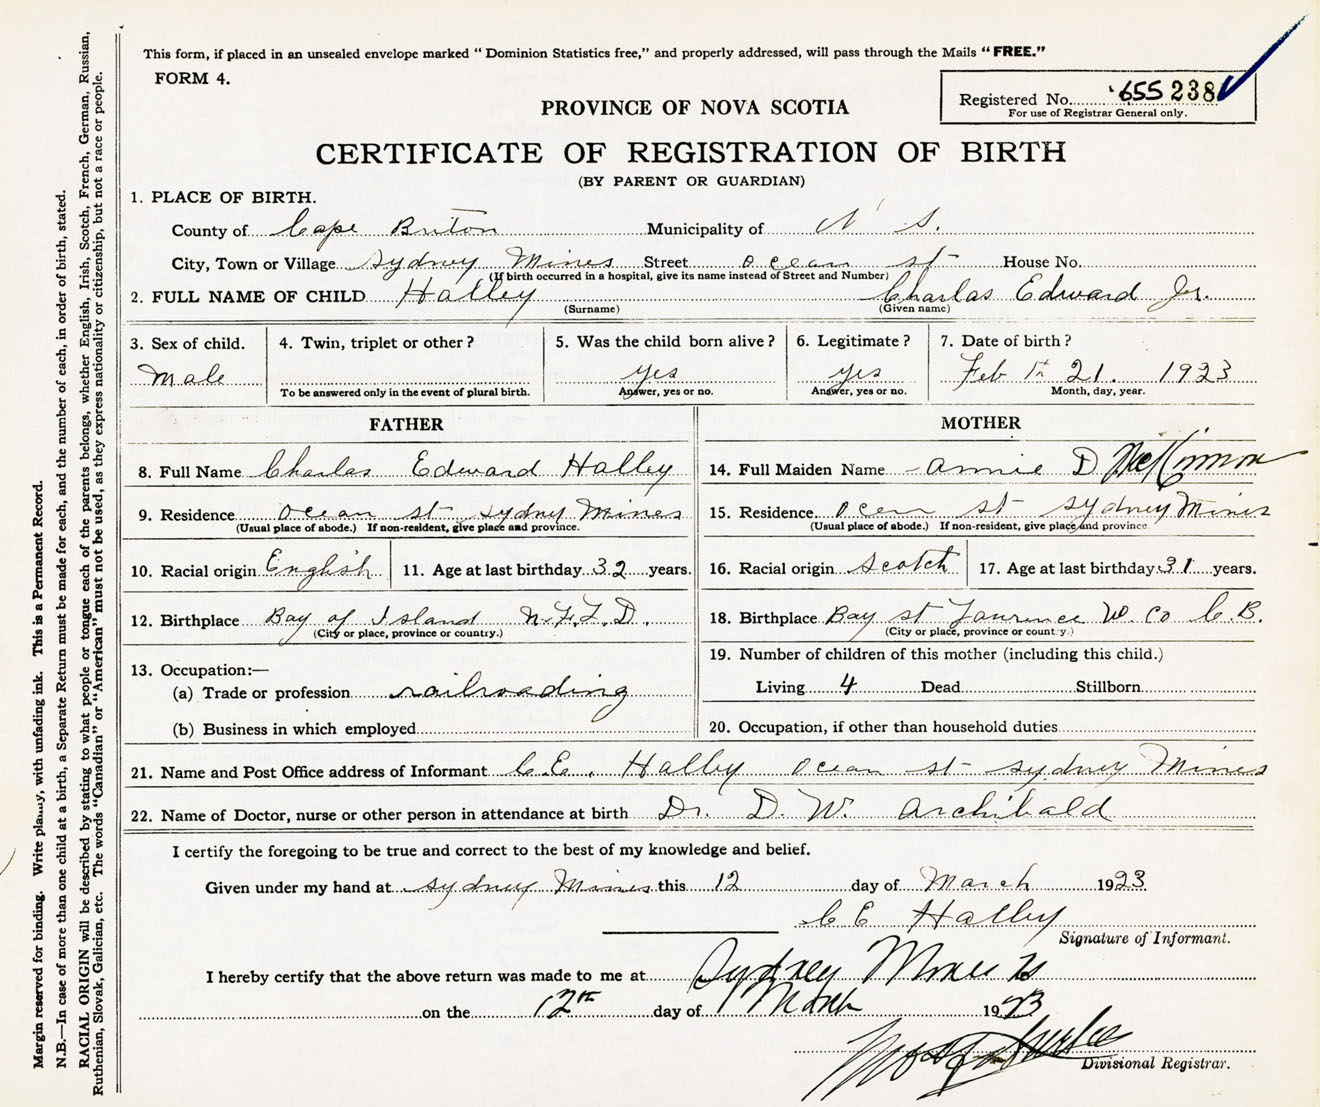 This form, if placed in an unsealed envelope marked “ Dominion Statistics free,” and properly addressed, will pass through the Mails “ FREE.”
FORM 4.
Registered No. 655 238
For use of Registrar General only.
PROVINCE OF NOVA SCOTIA
CERTIFICATE OF REGISTRATION OF BIRTH
(BY PARENT OR GUARDIAN)
1. PLACE OF BIRTH.
County of Cape Briton Municipality of N S.
City, Town or Village Sydney Mines Street ocean st House No.
(If birth occurred in a hospital, give its name instead of Street and Number)
2. FULL NAME OF CHILD Halley Charlas Edward Jr.
(Surname) (Given name)
3. Sex of child. 4. Twin, triplet or other ? 5. Was the child born alive ? 6. Legitimate ? 7. Date of birth ?
Male yes yes Feb 21. 1923
To be answered only in the event of plural birth. Answer, yes or no. Answer, yes or no. Month, day, year.
FATHER MOTHER
8. Full Name Charlas Edward Halley 14. Full Maiden Name annie D McKinnon
9. Residence ocean st sydny Mines 15. Residence ocen st sydney Mines
(Usual place of abode.) If non-resident, give place and province. (Usual place of abode.) If non-resident, give place and province
10. Racial origin English 11. Age at last birthday 32 years. 16. Racial origin Scotch 17. Age at last birthday 31 years.
12. Birthplace Bay of Island N.F.L.D. 18. Birthplace Bay st Laurence W. Co C.B.
(City or place, province or country.) (City or place, province or country.)
13. Occupation:— 19. Number of children of this mother (including this child.)
(a) Trade or profession railroading Living 4 Dead Stillborn
(b) Business in which employed 20. Occupation, if other than household duties
21. Name and Post Office address of Informant C.E. Halley ocean st sydney Mines
22. Name of Doctor, nurse or other person in attendance at birth Dr. D. W. Archibald
I certify the foregoing to be true and correct to the best of my knowledge and belief.
Given under my hand at sydney Mines this 12 day of March 1923
C E Halley
Signature of Informant.
I hereby certify that the above return was made to me at Sydney Mines
on the 12th day of March 1923
Divisional Registrar.
Margin reserved for binding. Write plainly, with unfading ink. This is a Permanent Record.
N.B.—In case of more than one child at a birth, a Separate Return must be made for each, and the number of each, in order of birth, stated.
RACIAL ORIGIN will be described by stating to what people or tongue each of the parents belongs, whether English, Irish, Scotch, French, German, Russian,
Ruthenian, Slovak, Galician, etc. The words “Canadian” or “American” must not be used, as they express nationality or citizenship, but not a race or people.